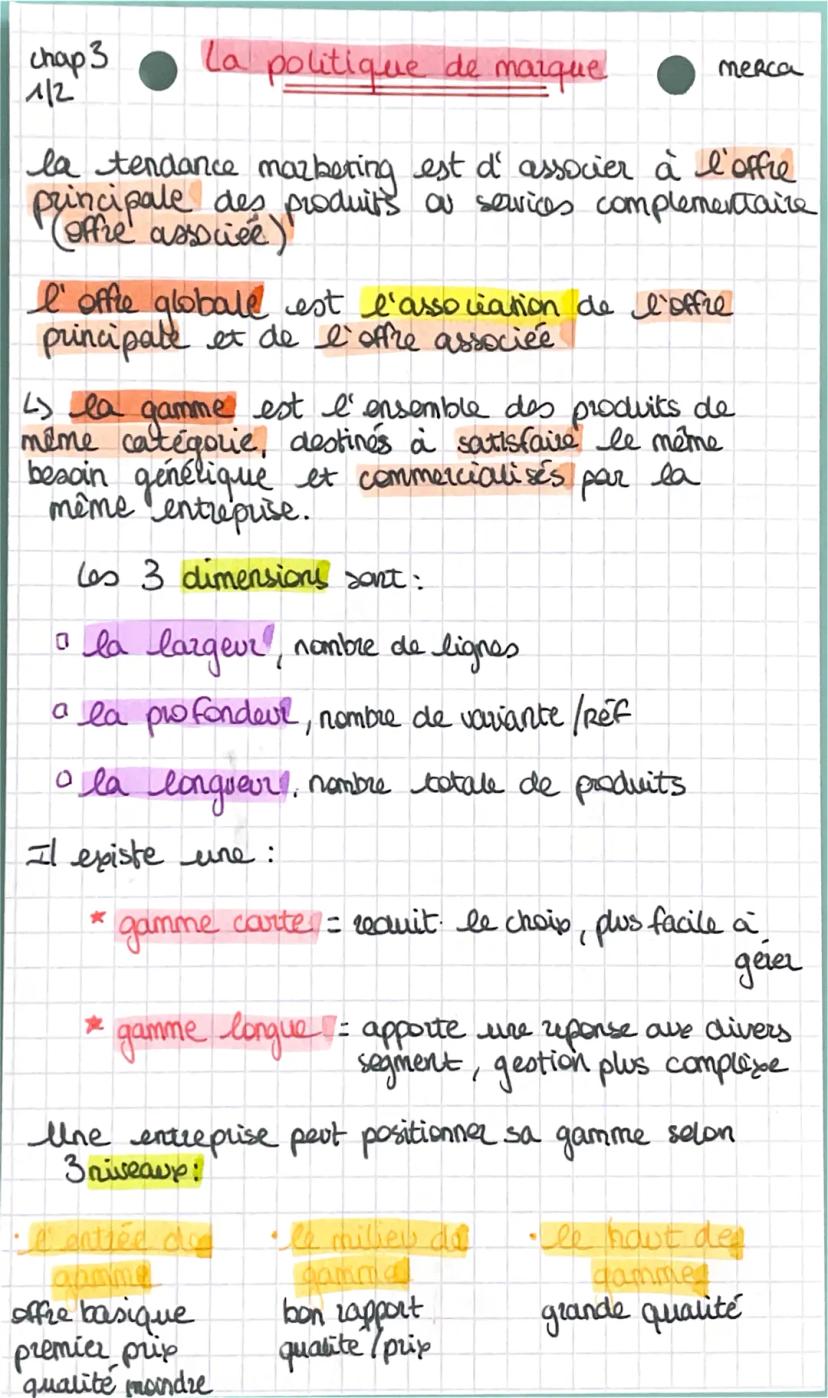 chap 3
1/2
La politique de marque
merca
la tendance marketing est d'associer à l'offre
principale des produits ou services complementaire
(offre associée)
l'offre globale est l'association de l'offre
principale et de l'offre associée
↳ la gamme est l'ensemble des produits de
même catégorie, destinés à satisfaire le même
besoin générique et commercialisés par la
même entreprise.
Les 3 dimensions sont :
la largeur, nombre de lignes
la profondeur, nombre de variante / réf
la longueur, nombre totale de produits
Il existe une :
* gamme courte = reduit le choix, plus facile à
gérer
* gamme longue = apporte une réponse aux divers
segment, gestion plus complexe
Une entreprise peut positionner sa gamme selon
3 niveaux :
• l'entrée de
gamme
offre basique
premier prix
qualité moindre
• le milieu de
gamme
bon rapport
qualité / prix
• le haut de
gamme
grande qualité